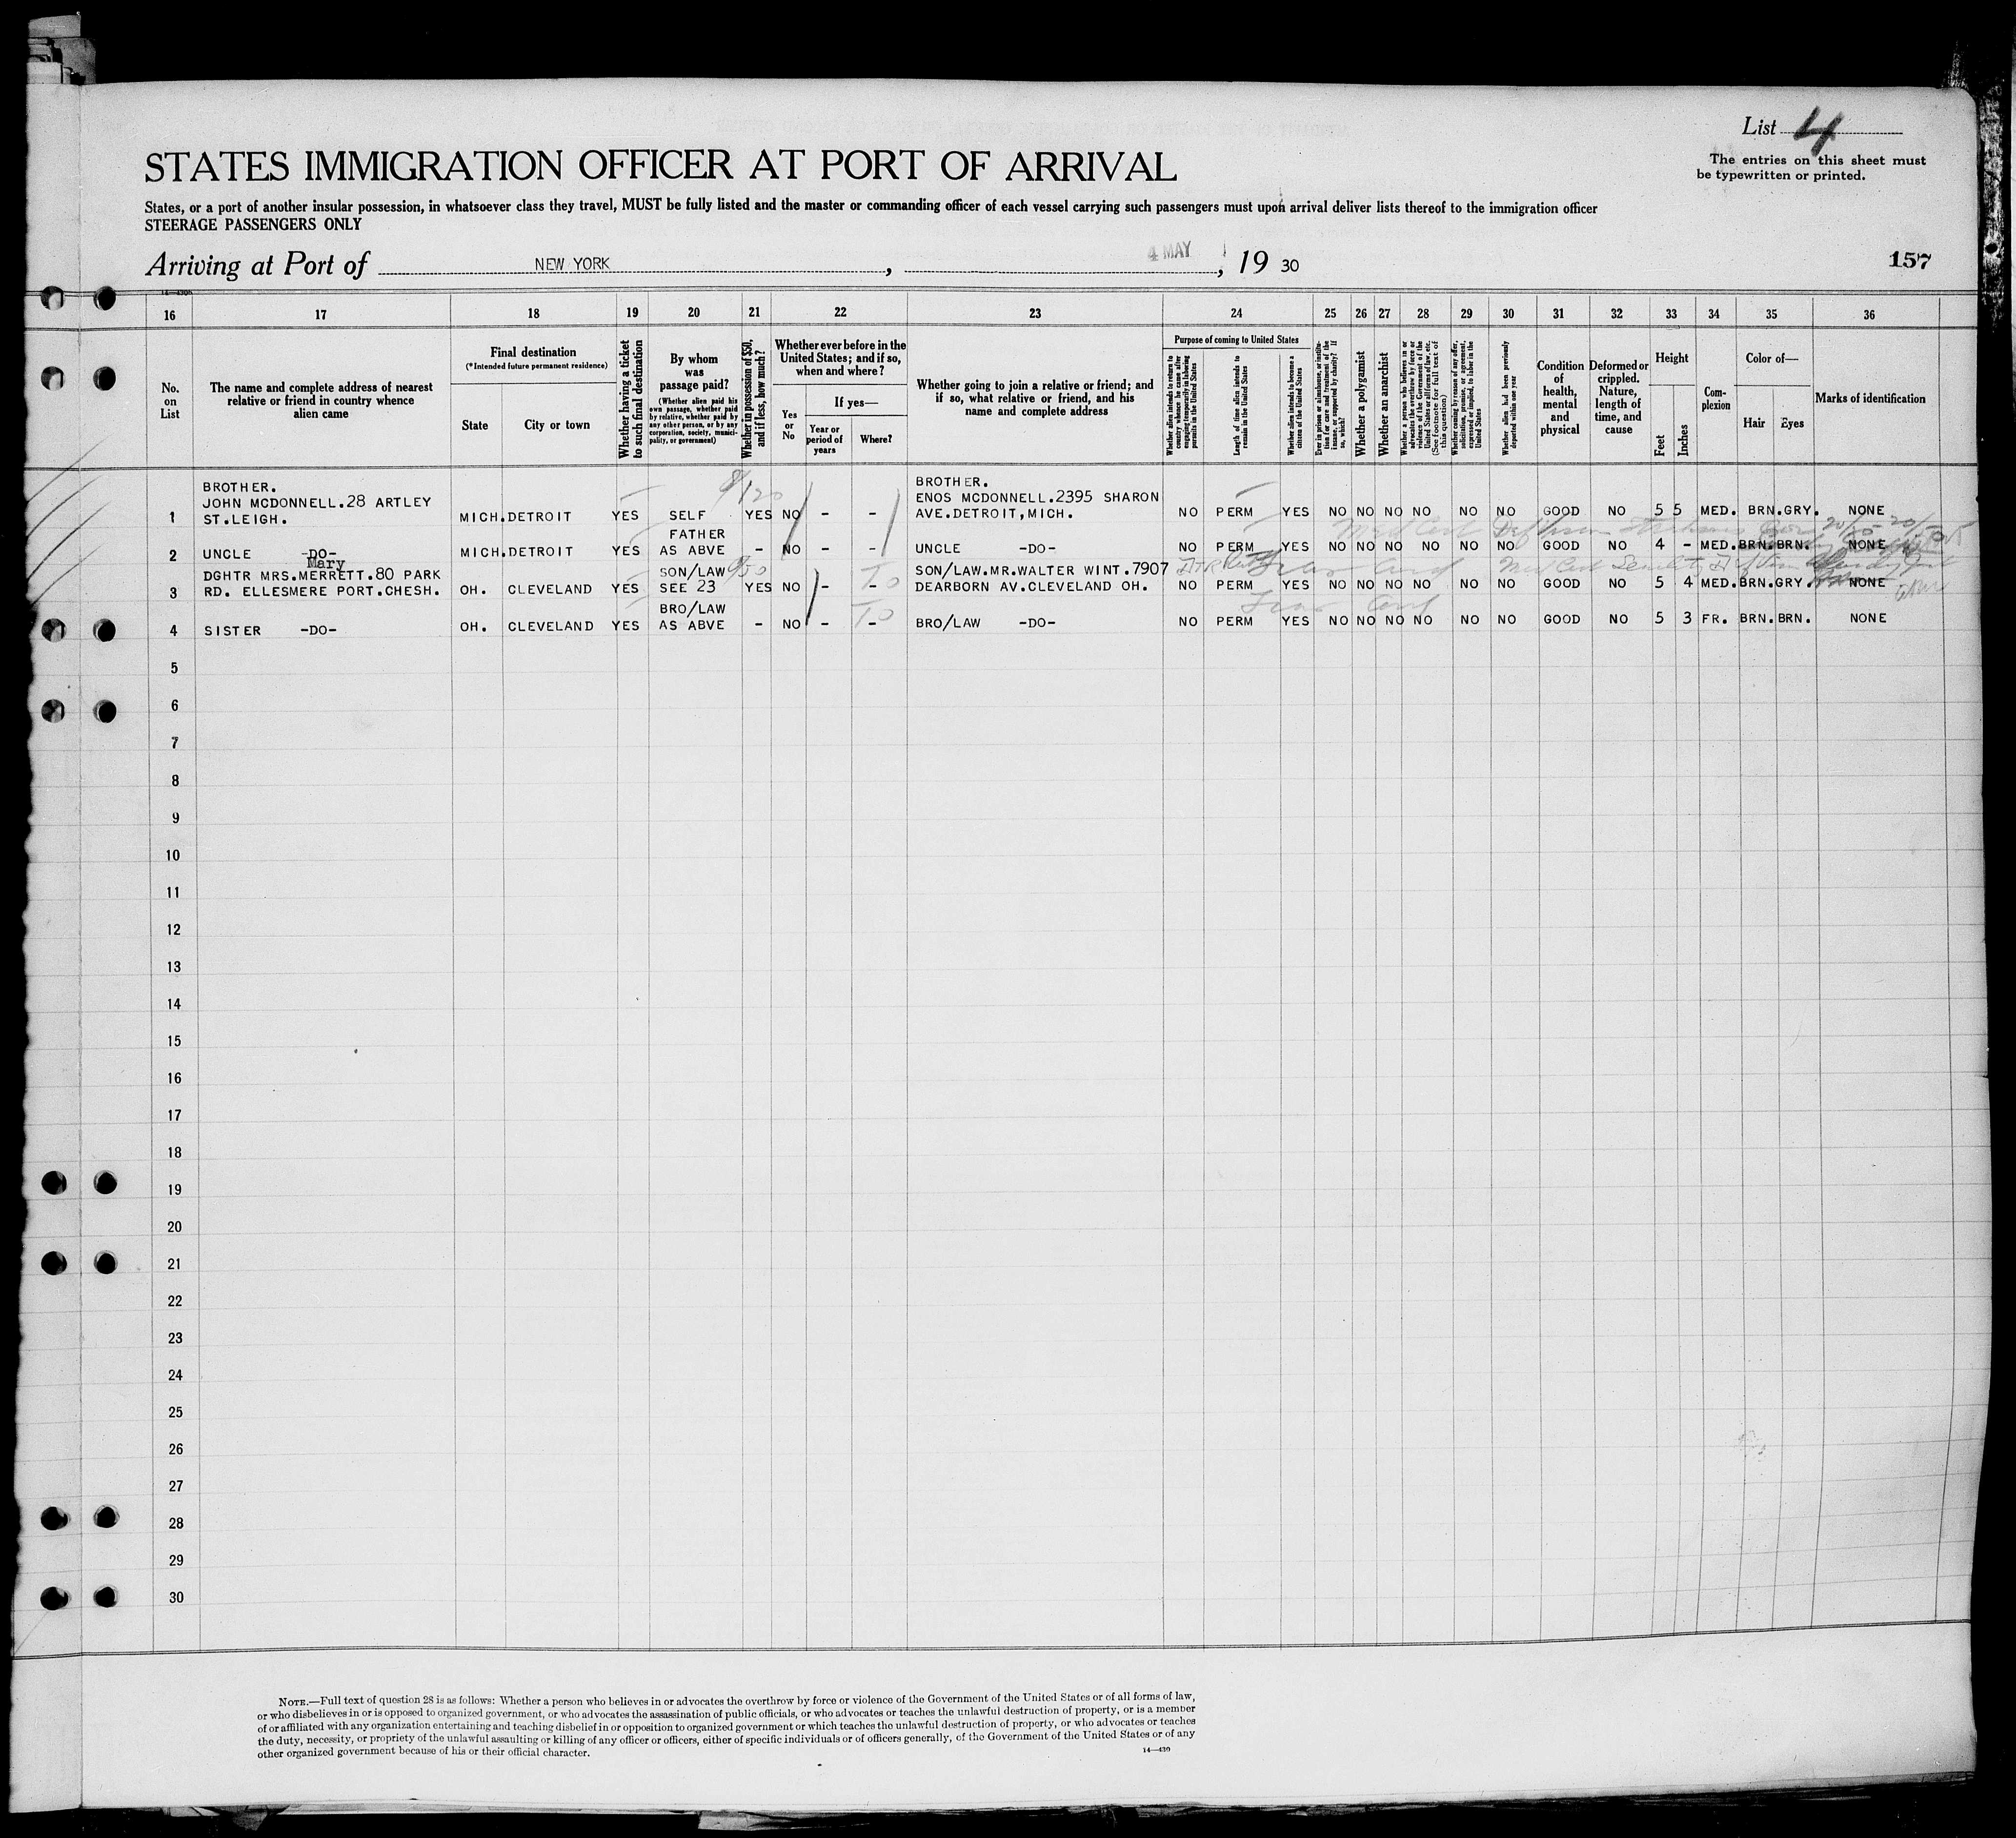 List 4
The entries on this sheet must
be typewritten or printed.
STATES IMMIGRATION OFFICER AT PORT OF ARRIVAL
States, or a port of another insular possession, in whatsoever class they travel, MUST be fully listed and the master or commanding officer of each vessel carrying such passengers must upon arrival deliver lists thereof to the immigration officer
STEERAGE PASSENGERS ONLY
Arriving at Port of NEW YORK, 4 MAY, 19 30
157
16 17 18 19 20 21 22 23 24 25 26 27 28 29 30 31 32 33 34 35 36
No. on List
The name and complete address of nearest
relative or friend in country whence
alien came
Final destination
(*Intended future permanent residence)
State
City or town
Whether having a ticket
to such final destination
By whom
was
passage paid?
(Whether alien paid his
own passage, whether paid
by relative, whether paid by
any other person, or by any
corporation, society, munici-
pality, or government)
Whether in possession of $50,
and if less, how much?
Whether ever before in the
United States; and if so,
when and where?
Yes
or
No
If yes—
Year or
period of
years
Where?
Whether going to join a relative or friend; and
if so, what relative or friend, and his
name and complete address
Purpose of coming to United States
Whether alien intends to return to
country whence he came after
engaging temporarily in laboring
pursuits in the United States
Length of time alien intends to
remain in the United States
Whether alien intends to become a
citizen of the United States
Ever in prison or almshouse, or institu-
tion for care and treatment of the
insane, or supported by charity? If
so, which?
Whether a polygamist
Whether an anarchist
Whether a person who believes in or
advocates the overthrow by force or
violence of the Government of the
United States or all forms of law, etc.
(See footnote for full text of
this question)
Whether coming by reason of any offer,
solicitation, promise, or agreement,
expressed or implied, to labor in the
United States
Whether alien had been previously
deported within one year
Condition
of
health,
mental
and
physical
Deformed or
crippled.
Nature,
length of
time, and
cause
Height
Feet
Inches
Com-
plexion
Color of—
Hair
Eyes
Marks of identification
BROTHER.
JOHN MCDONNELL.28 ARTLEY
1 ST.LEIGH. MICH.DETROIT YES SELF 120 YES NO - -
BROTHER.
ENOS MCDONNELL.2395 SHARON
AVE.DETROIT,MICH. NO PERM YES NO NO NO NO NO NO GOOD NO 5 5 MED. BRN.GRY. NONE
FATHER
2 UNCLE -DO- MICH.DETROIT YES AS ABVE - NO - - UNCLE -DO- NO PERM YES NO NO NO NO NO NO GOOD NO 4 - MED.BRN.BRN. NONE
Mary
DGHTR MRS.MERRETT.80 PARK SON/LAW 50 SON/LAW.MR.WALTER WINT.7907
3 RD. ELLESMERE PORT.CHESH. OH. CLEVELAND YES SEE 23 YES NO - - DEARBORN AV.CLEVELAND OH. NO PERM YES NO NO NO NO NO NO GOOD NO 5 4 MED.BRN.GRY. NONE
BRO/LAW
4 SISTER -DO- OH. CLEVELAND YES AS ABVE - NO - - BRO/LAW -DO- NO PERM YES NO NO NO NO NO NO GOOD NO 5 3 FR. BRN.BRN. NONE
5
6
7
8
9
10
11
12
13
14
15
16
17
18
19
20
21
22
23
24
25
26
27
28
29
30
NOTE.—Full text of question 28 is as follows: Whether a person who believes in or advocates the overthrow by force or violence of the Government of the United States or of all forms of law,
or who disbelieves in or is opposed to organized government, or who advocates the assassination of public officials, or who advocates or teaches the unlawful destruction of property, or is a member
of or affiliated with any organization entertaining and teaching disbelief in or opposition to organized government or which teaches the unlawful destruction of property, or who advocates or teaches
the duty, necessity, or propriety of the unlawful assaulting or killing of any officer or officers, either of specific individuals or of officers generally, of the Government of the United States or of any
other organized government because of his or their official character.
14—430